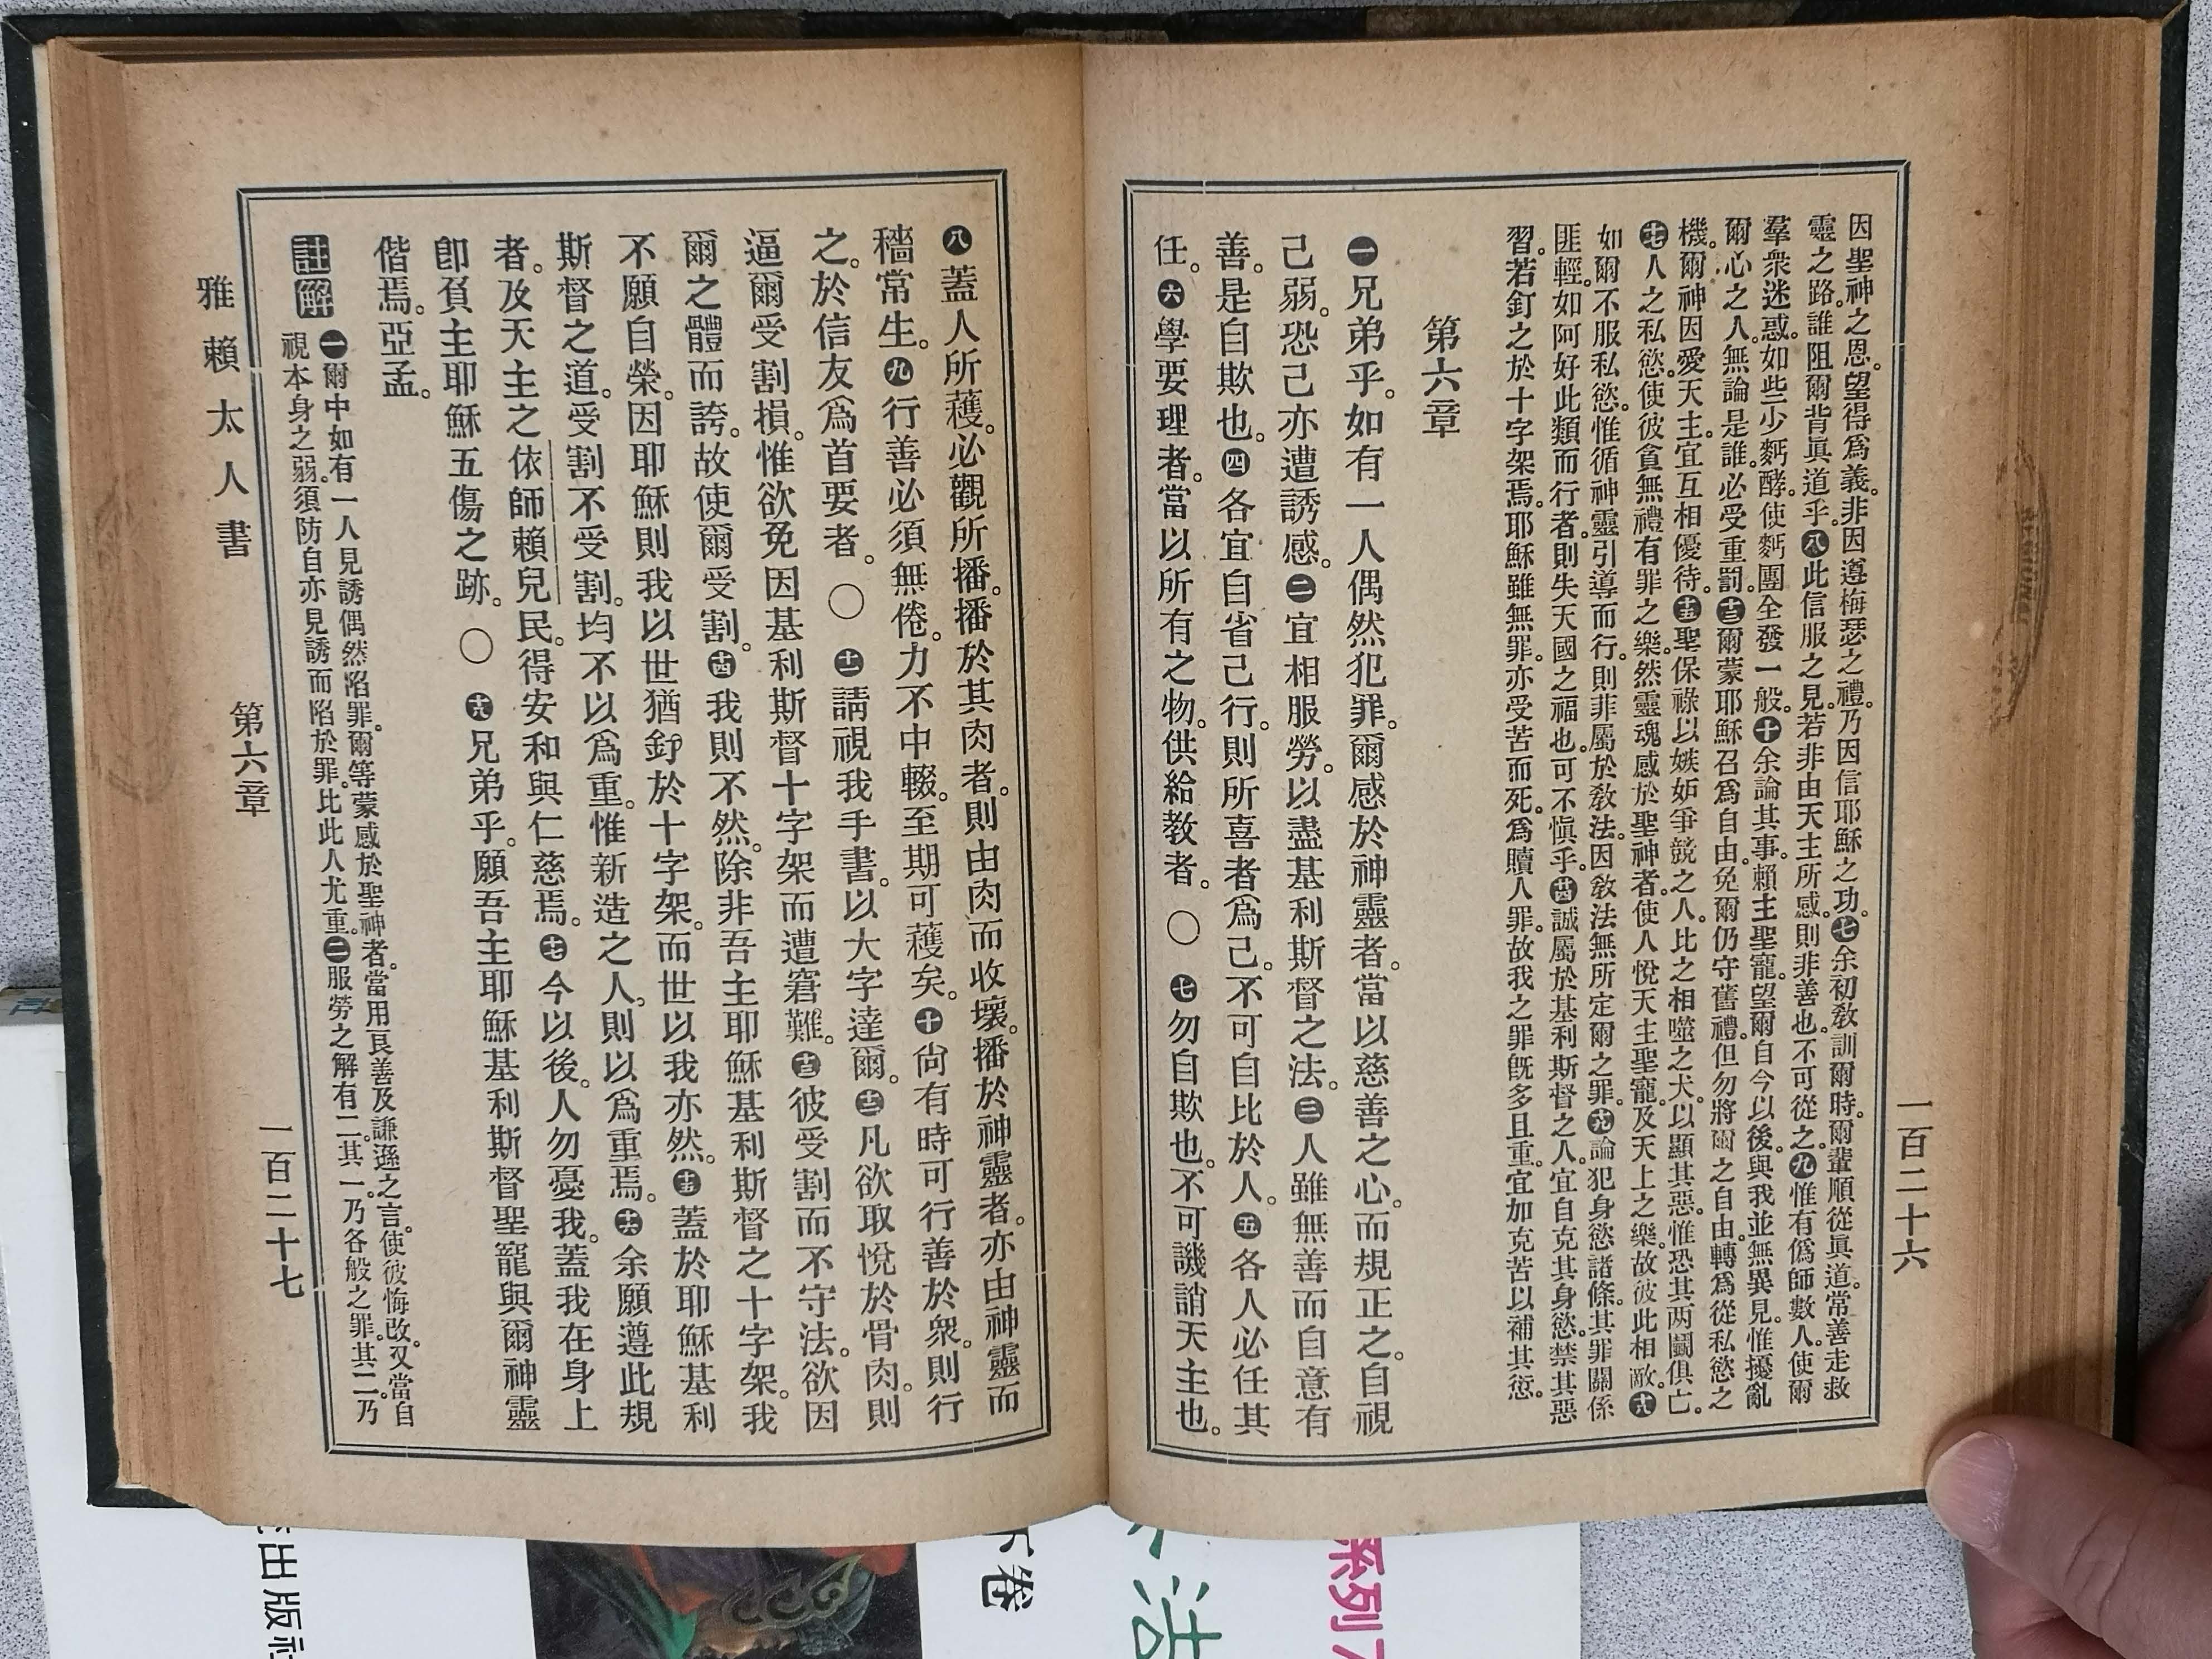 一百二十六
因聖神之恩。望得爲義。非因遵梅瑟之禮。乃因信耶穌之功。㊆余初敎訓爾時。爾輩順從眞道。常善走救
靈之路。誰阻爾背眞道乎。㊇此信服之見。若非由天主所感。則非善也。不可從之。㊈惟有僞師數人。使爾
羣衆迷惑。如些少麪酵。使麪團全發一般。㊉余論其事。賴主聖寵。望爾自今以後。與我並無異見。惟擾亂
爾心之人。無論是誰。必受重罰。十三爾蒙耶穌召爲自由。免爾仍守舊禮。但勿將爾之自由。轉爲從私慾之
機。爾神因愛天主。宜互相優待。十五聖保祿以嫉妬爭競之人。比之相噬之犬。以顯其惡。惟恐其两鬭俱亡。
十七人之私慾。使彼貪無禮有罪之樂。然靈魂感於聖神者。使人悅天主聖寵。及天上之樂。故彼此相敵。十八
如爾不服私慾。惟循神靈引導而行。則菲屬於敎法。因敎法無所定爾之罪。十九論犯身慾諸條。其罪關係
匪輕。如阿好此類而行者。則失天國之福也。可不愼乎。廿四誠屬於基利斯督之人。宜自克其身慾。禁其惡
習。若釘之於十字架焉。耶穌雖無罪。亦受苦而死。爲贖人罪。故我之罪旣多且重。宜加克苦以補其愆。
第六章
㊀兄弟乎。如有一人偶然犯罪。爾感於神靈者。當以慈善之心。而規正之。自視
己弱。恐己亦遭誘感。㊁宜相服勞。以盡基利斯督之法。㊂人雖無善而自意有
善。是自欺也。㊃各宜自省己行。則所喜者爲己。不可自比於人。㊄各人必任其
任。㊅學要理者。當以所有之物。供給敎者。〇㊆勿自欺也。不可譏誚天主也。
㊇蓋人所穫。必觀所播。播於其肉者。則由肉而收壞。播於神靈者。亦由神靈而
穡常生。㊈行善必須無倦。力不中輟。至期可穫矣。㊉尙有時可行善於衆。則行
之。於信友爲首要者。〇十一請視我手書。以大字達爾。十二凡欲取悅於骨肉。則
逼爾受割損。惟欲免因基利斯督十字架而遭窘難。十三彼受割而不守法。欲因
爾之體而誇。故使爾受割。十四我則不然。除非吾主耶穌基利斯督之十字架。我
不願自榮。因耶穌則我以世猶釘於十字架。而世以我亦然。十五蓋於耶穌基利
斯督之道。受割不受割。均不以爲重。惟新造之人。則以爲重焉。十六余願遵此規
者。及天主之依師賴兒民。得安和與仁慈焉。十七今以後。人勿憂我。蓋我在身上
卽負主耶穌五傷之跡。〇十八兄弟乎。願吾主耶穌基利斯督聖寵與爾神靈
偕焉。亞孟。
註解
㊀爾中如有一人見誘偶然陷罪。爾等蒙感於聖神者。當用艮善及謙遜之言。使彼悔改。又當自
視本身之弱。須防自亦見誘而陷於罪。比此人尤重。㊁服勞之解有二。其一。乃各般之罪。其二。乃
雅賴太人書 第六章 一百二十七
出版社
下卷
法
系列7